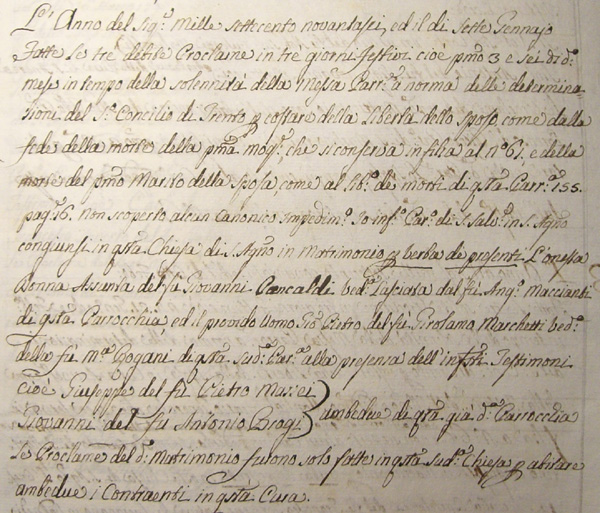 L'Anno del Sig.e Mille Settecento novantasei, ed il dì Sette Gennajo
Fatte le trè debite Proclame in trè giorni festivi cioè p̃mo 3 e sei di d.o
mese in tempo della solennità della Messa Parr.a a norma delle determina-
zioni del S.o Concilio di Trento e costare della libertà dello sposo come dalla
fede della morte della p̃ma mog.e, che si conserva in filza al n.o 61. e della
morte del p̃mo Marito della sposa, come al lib.o de morti di q̃sta Parr.a 155.
pag. 16. non scoperto alcun Canonico impedim.o Io inf.o Par.o di S. Salv.e in S. Agno
congiunsi in q̃sta Chiesa di S. Agno in Matrimonio p verba de presenti L'onesta
Donna Assunta del fù Giovanni Pancaldi ved.a lasciata dal fù Ang.o Maccianti
di q̃sta Parrocchia, ed il provido Uomo Gio Pietro del fù Girolamo Marchetti ved.o
della fù M.a Gogani di q̃sta sud.a Par.a alla presenza dell'infr̃tti Testimoni
cioè Giuseppe del fù Pietro
Giovanni del fù Antonio ambedue di q̃sta già d.a Parrocchia
Le Proclame del d.o Matrimonio furono solo fatte in q̃sta sud.a Chiesa p abitare
ambedue i Contraenti in q̃sta Cura.